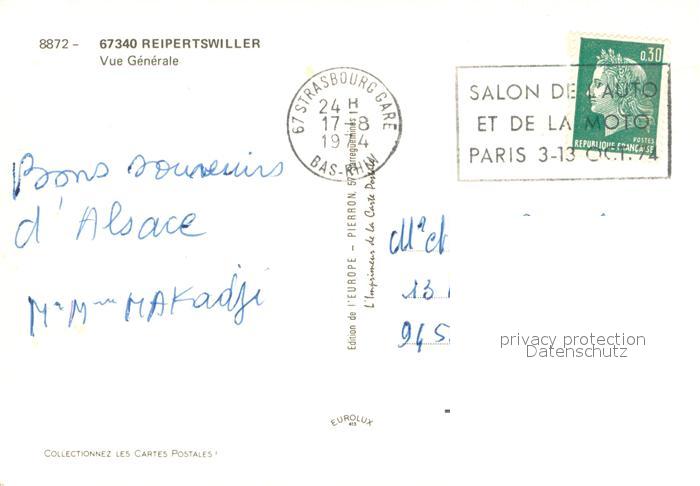 8872 - 67340 REIPERTSWILLER
Vue Générale
67 STRASBOURG GARE
24 H
17-8
1974
BAS-RHIN
0,30
POSTES
REPUBLIQUE FRANCAISE
SALON DE L'AUTO
ET DE LA MOTO
PARIS 3-13 OCT. 74
Bons souvenirs
d'Alsace
Mr Mme MAKadji
Edition de l'EUROPE - PIERRON, 57
L'Imprimeur de la Carte Postale
13
945
privacy protection
Datenschutz
EUROLUX
COLLECTIONNEZ LES CARTES POSTALES !